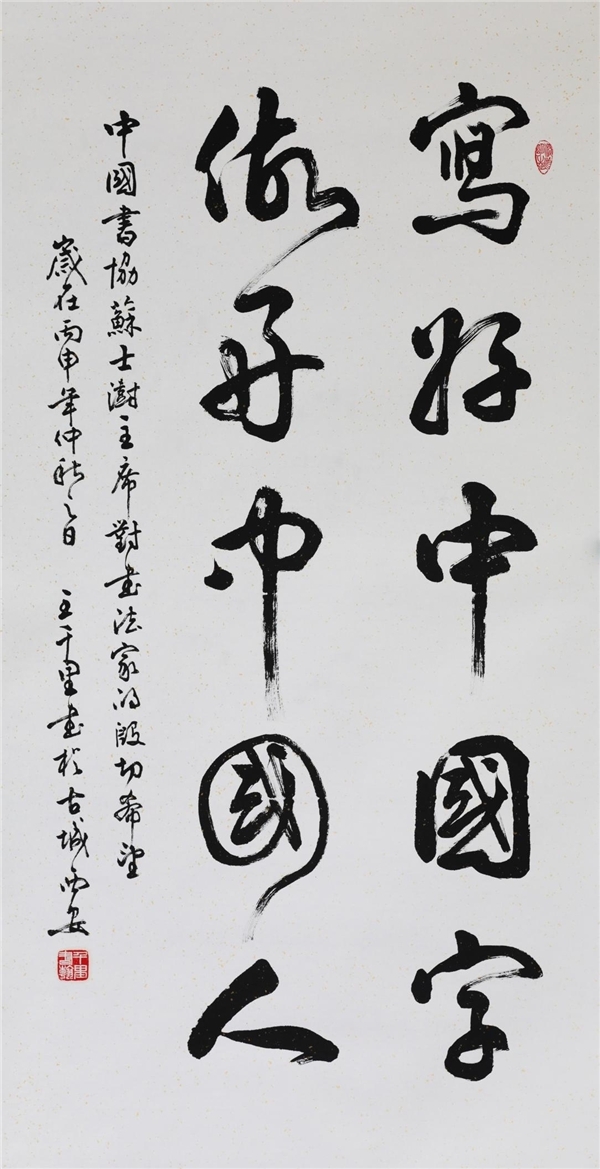 寫好中國字
做好中國人
中國書協蘇士澍主席對書法家的殷切希望
歲在丙申年仲秋之日 王千里書於古城西安